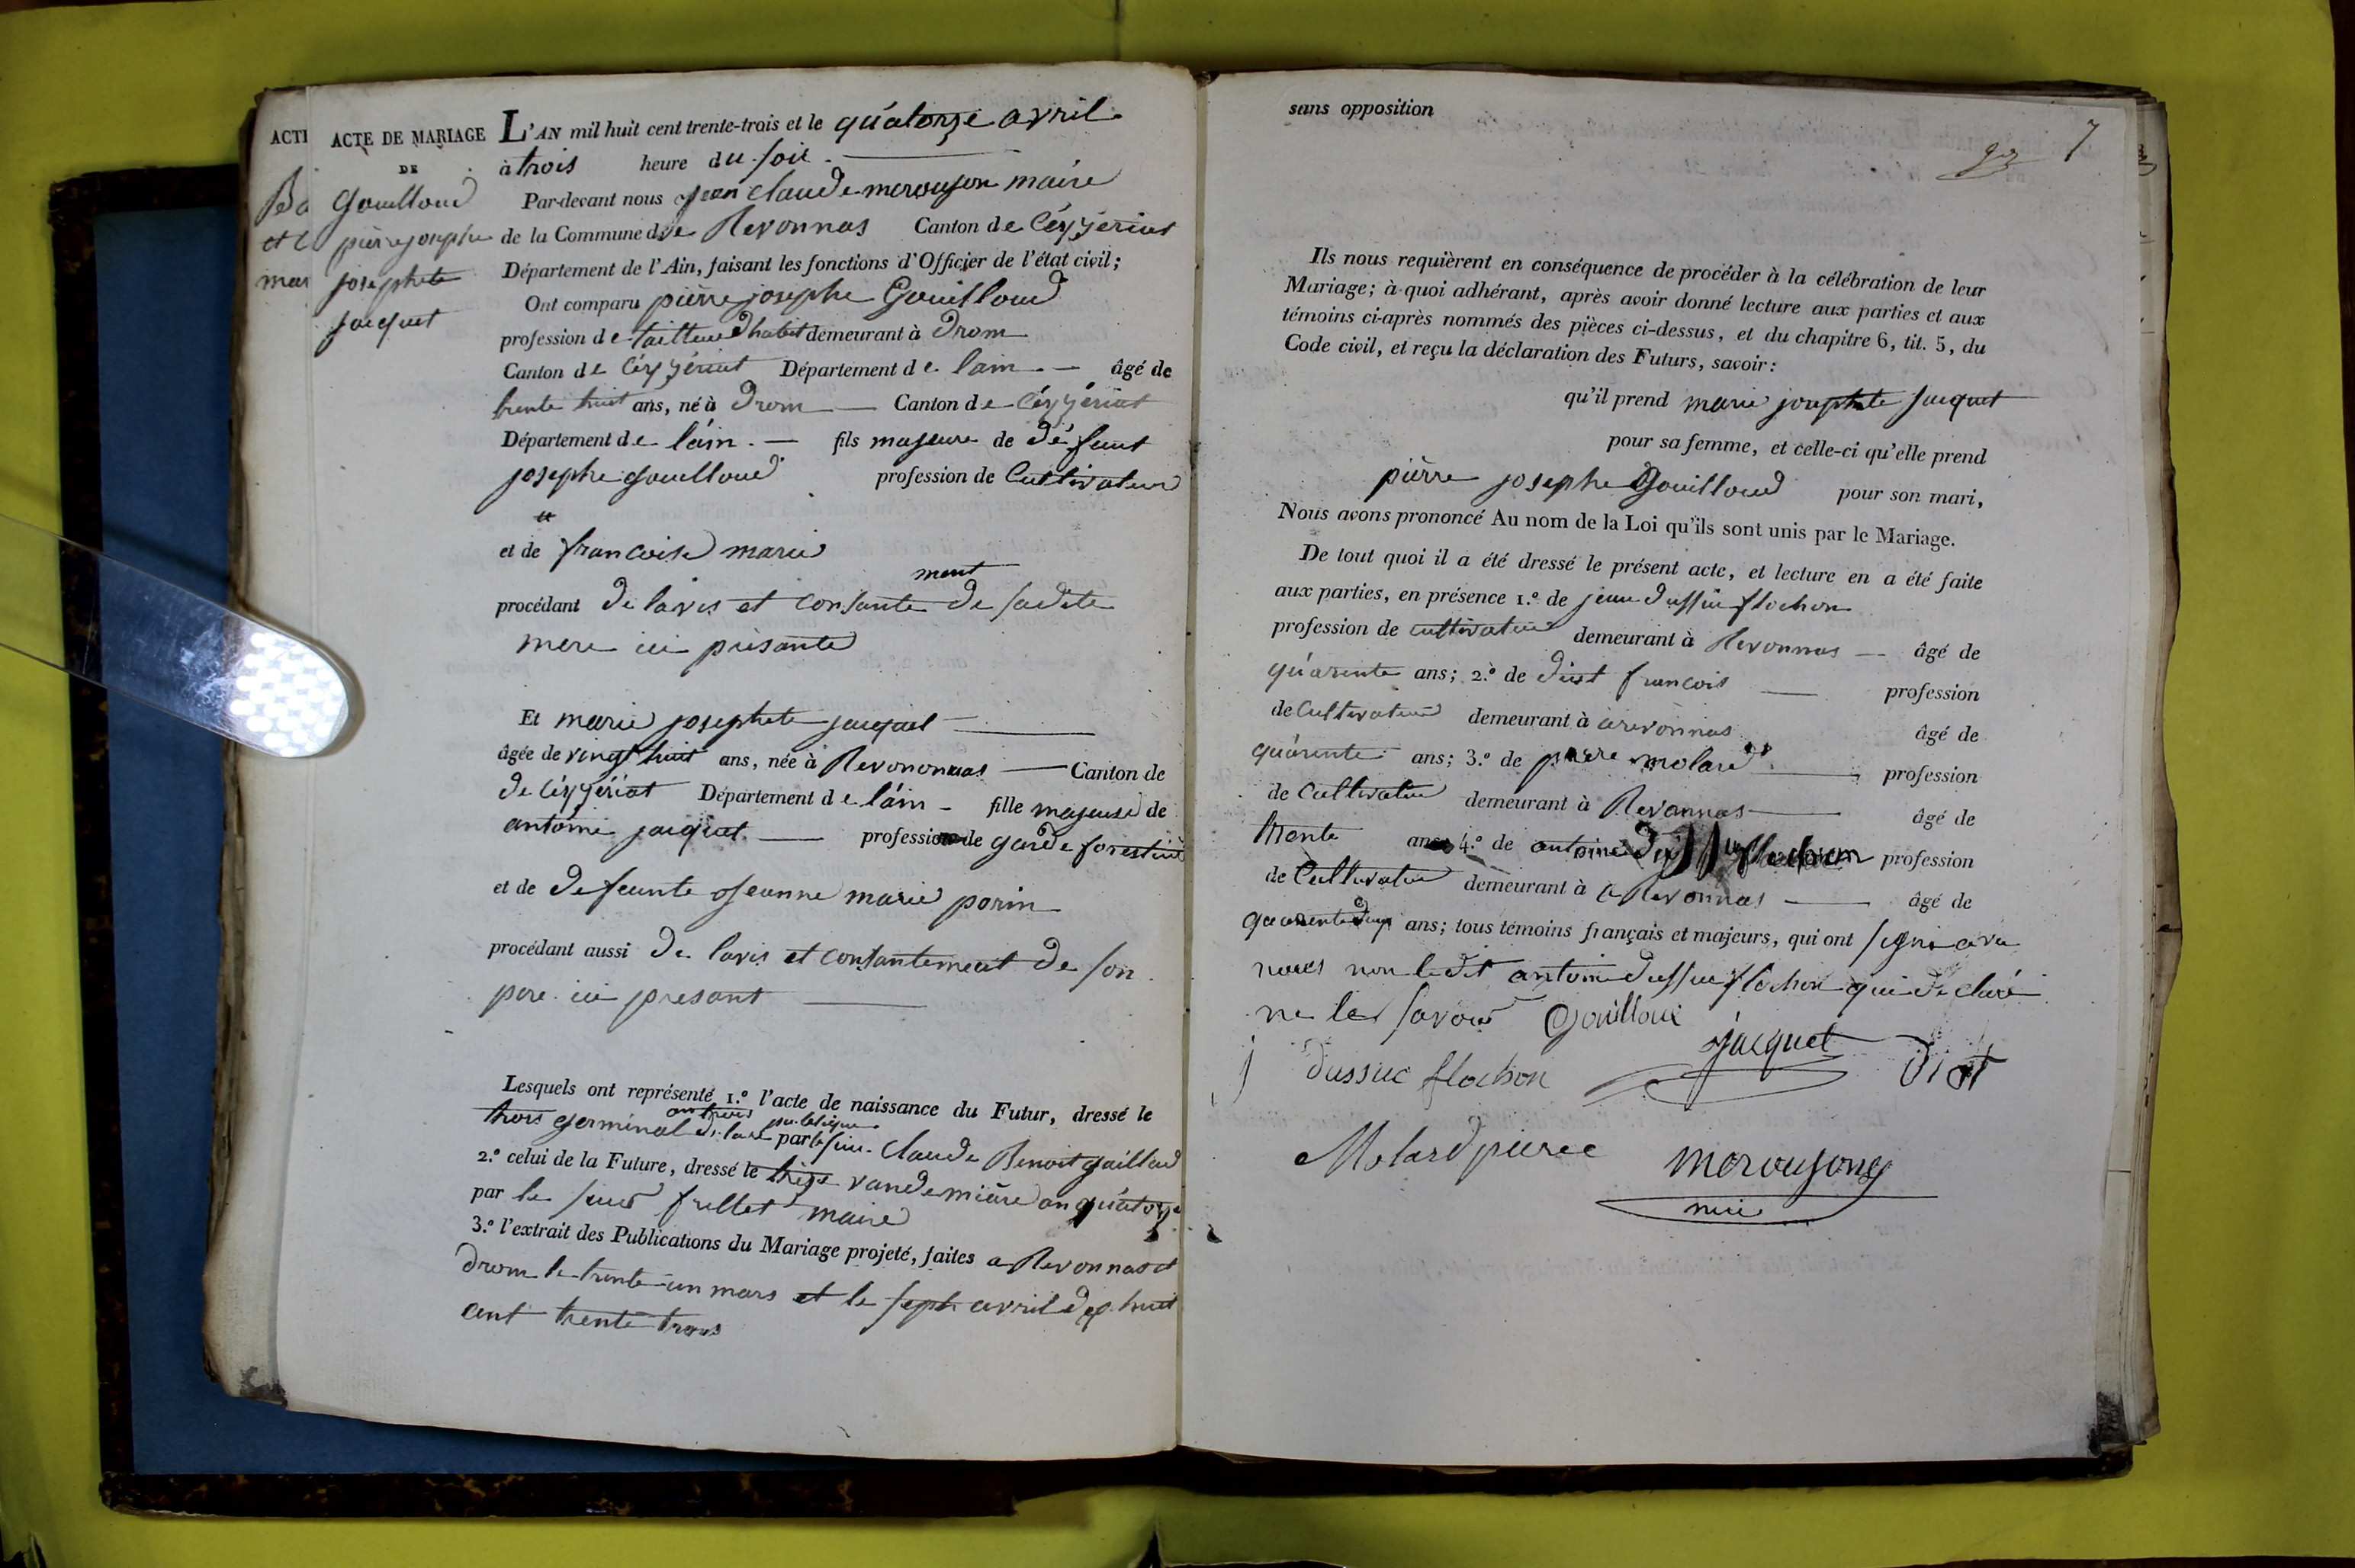 ACTI
Ba
et C
mar
ACTE DE MARIAGE
DE
Gouilloud
pièrre josephe
josephete
jacquet
L'AN mil huit cent trente-trois et le quátorze avril
à trois heure du soir
Par-devant nous jean claude merouson maire
de la Commune de Revonnas Canton de Céÿzériat
Département de l'Ain, faisant les fonctions d'Officier de l'état civil;
Ont comparu pièrre josephe Gouilloud
profession de tailleur d'habit demeurant à Drom
Canton de Céÿzériat Département de lain âgé de
trente huit ans, né à Drom Canton de Céÿzériat
Département de láin fils majeure de défunt
josephe gouilloud profession de Cultivateur
et de francoise marie
ment
procédant de lavis et consante de sadite
mere ici présante
Et marie josephete jacquet
âgée de vingt huit ans, née à Revononnas Canton de
de Céÿzériat Département de láin fille majeuse de
antoine jacquet profession de garde forestier
et de defeunte jeanne marie porin
procédant aussi de lavis et consantement de son
pere ici présant
Lesquels ont représenté 1.° l'acte de naissance du Futur, dressé le
trois germinal de lan trois publique par le sieur Claude Benoit gaillard
2.° celui de la Future, dressé le trèze vandemiäre an quátorze
par le sieur frillet maire
3.° l'extrait des Publications du Mariage projeté, faites a Revonnas et
drom le trente un mars et le sept avril dix huit
cent trente trois
sans opposition
7
Ils nous requièrent en conséquence de procéder à la célébration de leur
Mariage; à quoi adhérant, après avoir donné lecture aux parties et aux
témoins ci-après nommés des pièces ci-dessus, et du chapitre 6, tit. 5, du
Code civil, et reçu la déclaration des Futurs, savoir:
qu'il prend marie josephete jacquet
pour sa femme, et celle-ci qu'elle prend
pièrre josephe Gouilloud pour son mari,
Nous avons prononcé Au nom de la Loi qu'ils sont unis par le Mariage.
De tout quoi il a été dressé le présent acte, et lecture en a été faite
aux parties, en présence 1.° de jean dussuc flochon
profession de cultivateur demeurant à Revonnas âgé de
quárente ans; 2.° de diot francois profession
de Cultivateur demeurant à a revonnas âgé de
quárente ans; 3.° de pierre molard profession
de Cultivateur demeurant à Revonnas âgé de
trente ans 4.° de antoine dussuc flochon profession
de Cultivateur demeurant à a Revonnas âgé de
quarente deux ans; tous témoins français et majeurs, qui ont signé avec
nous non ledit antoine dussuc flochon qui de claré
ne le savoir Gouilloud
j dussuc flochon jacquet diot
Molard pierre merouson